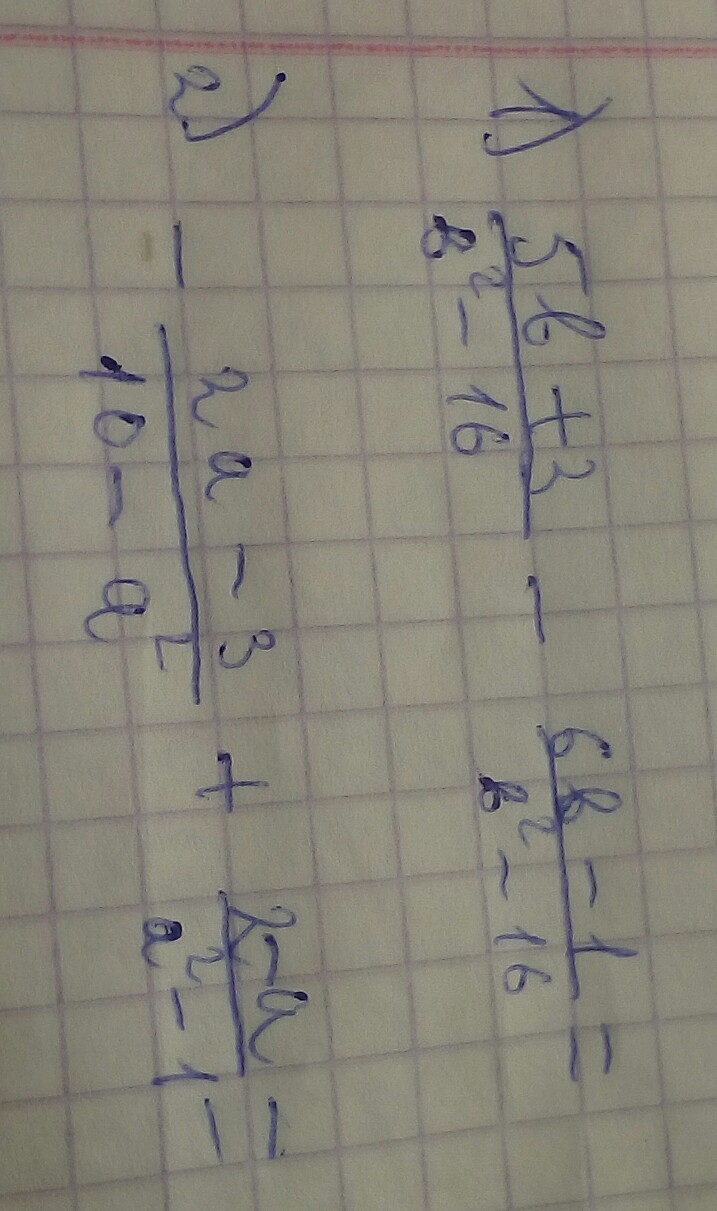 1) (5b + 3)/(b² - 16) - (6b - 1)/(b² - 16) =
2) - (2a - 3)/(10 - a²) + (2 - a)/(a² - 1) =